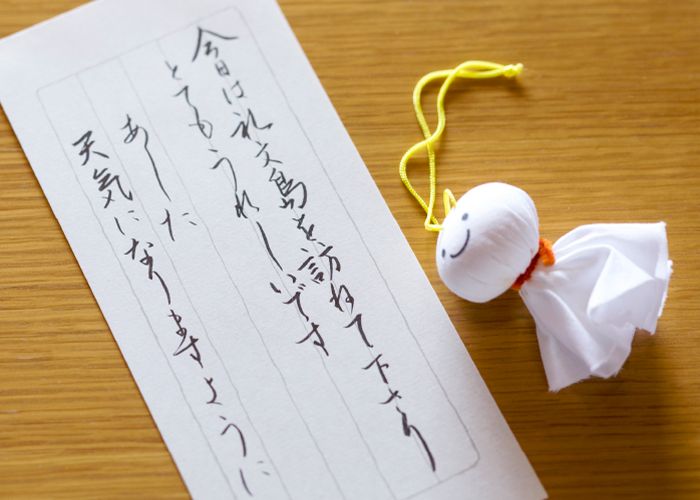 今日は礼文島を訪ねて下さり
とてもうれしいです
あした
天気になりますように